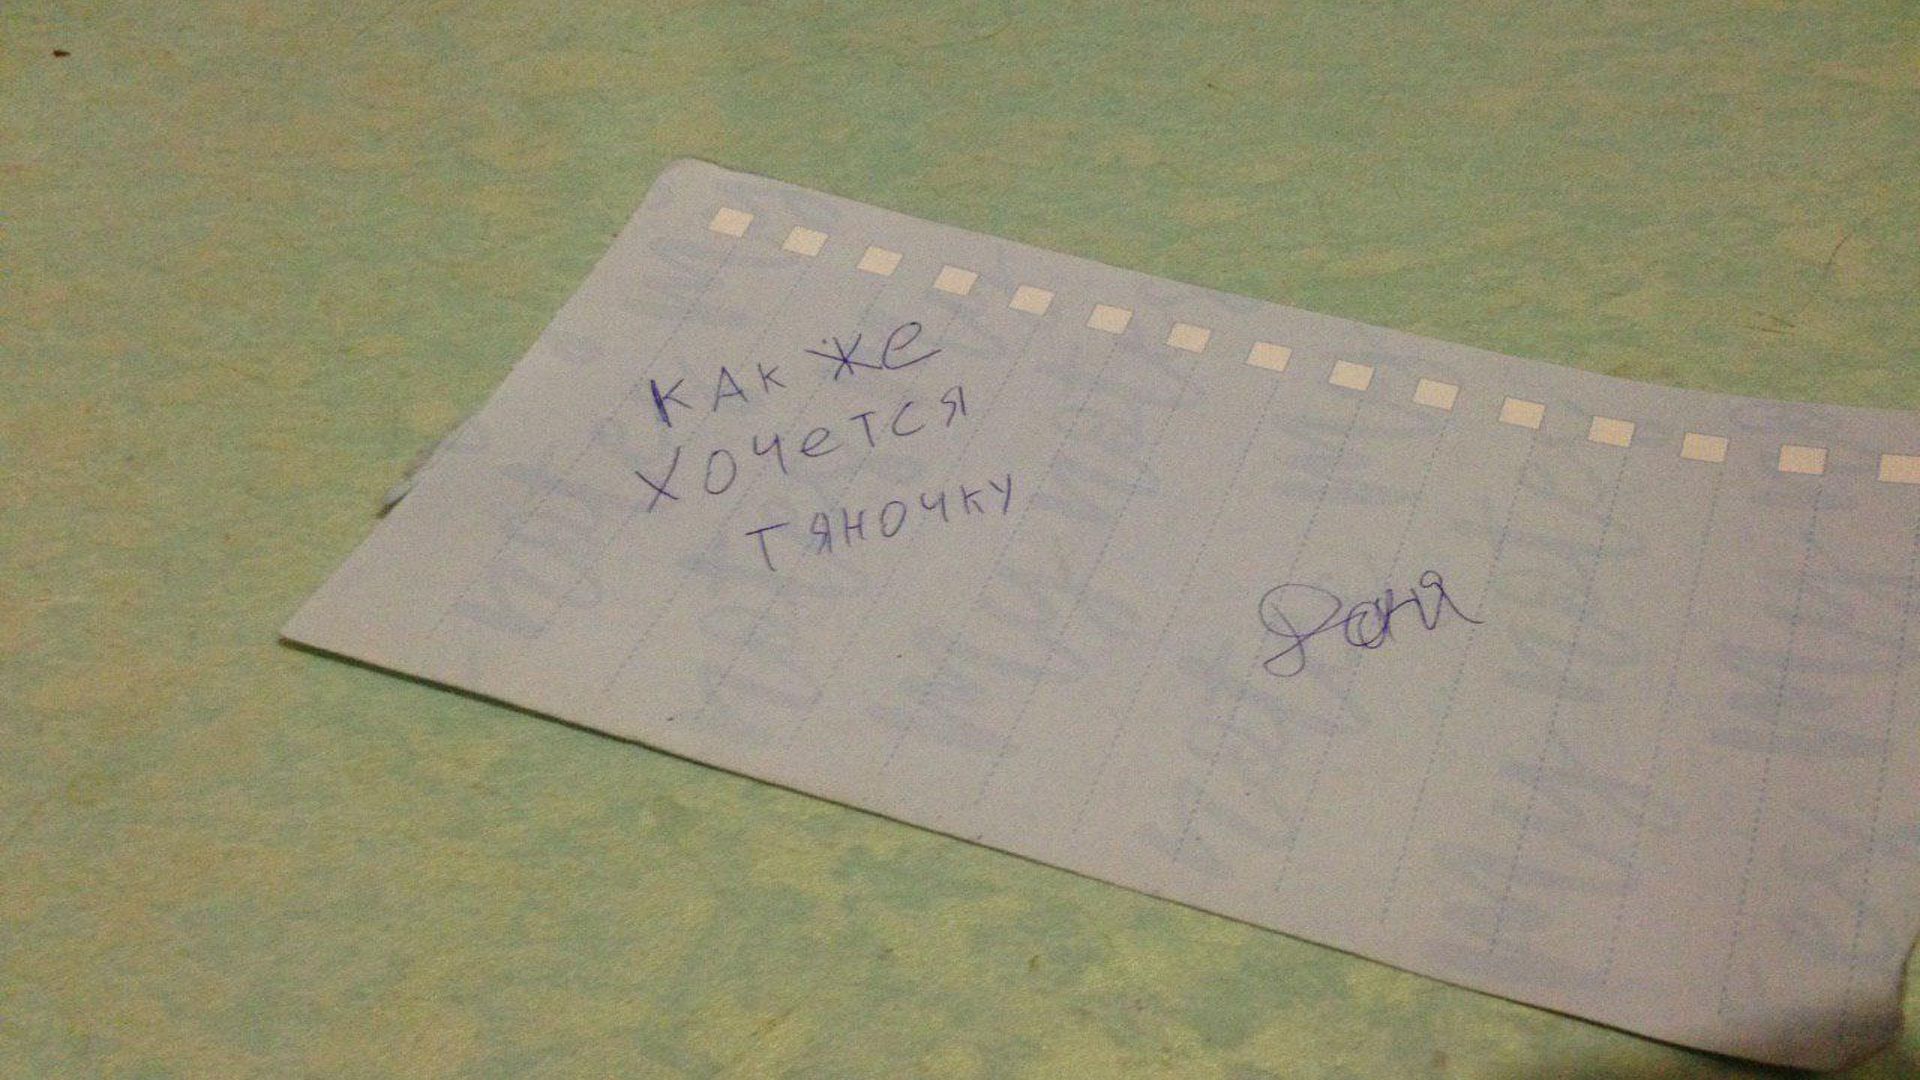 как же
хочется
тяночку